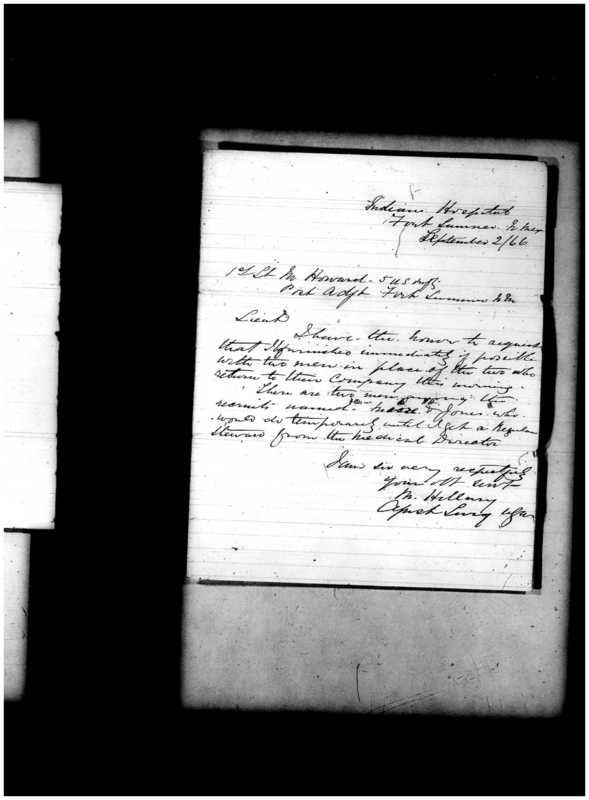 Indian Hospital
Fort Sumner N Mex
September 2/66
1st Lt M Howard - 5 US
Post Adjt Fort Sumner N M
Lieut
I have the honor to request
that I be furnished immediately if possible
with two men in place of the two who
return to their Company this morning.
There are two men among the
recruits named & Jones who
would do temporarily until I get a Regular
Steward from the Medical Director
I am sir very respectfully
your obt servt
M. Hillary
Surg USA